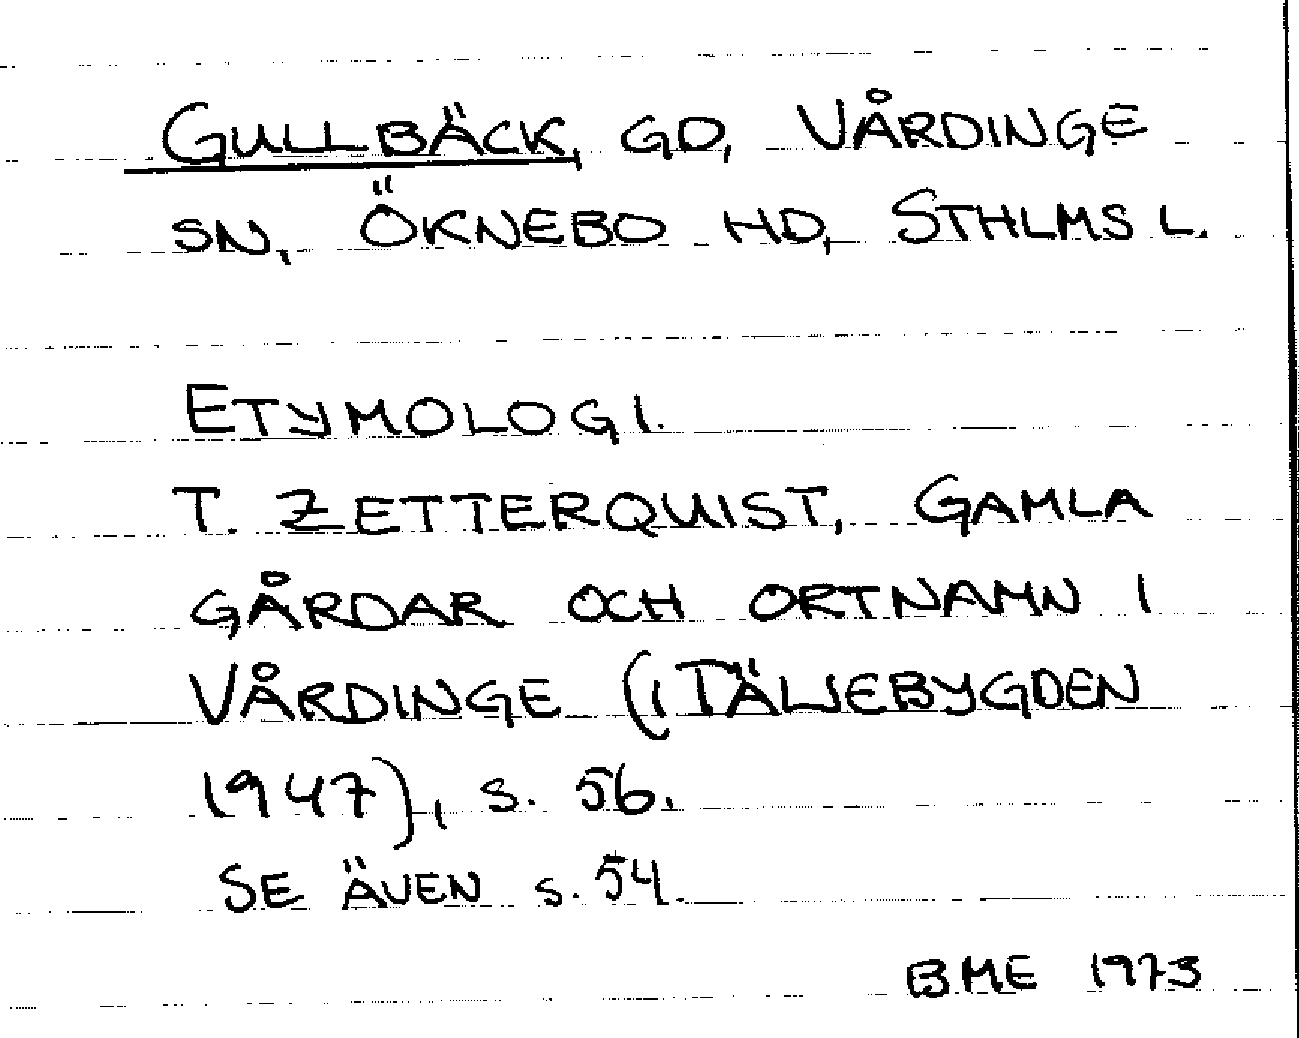 GULLBÄCK, GD, VÅRDINGE
SN, ÖKNEBO HD, STHLMS L.
ETYMOLOGI.
T. ZETTERQUIST, GAMLA
GÅRDAR OCH ORTNAMN I
VÅRDINGE (I TÄLJEBYGDEN
1947), S. 56.
SE ÄVEN S. 54.
BME 1973